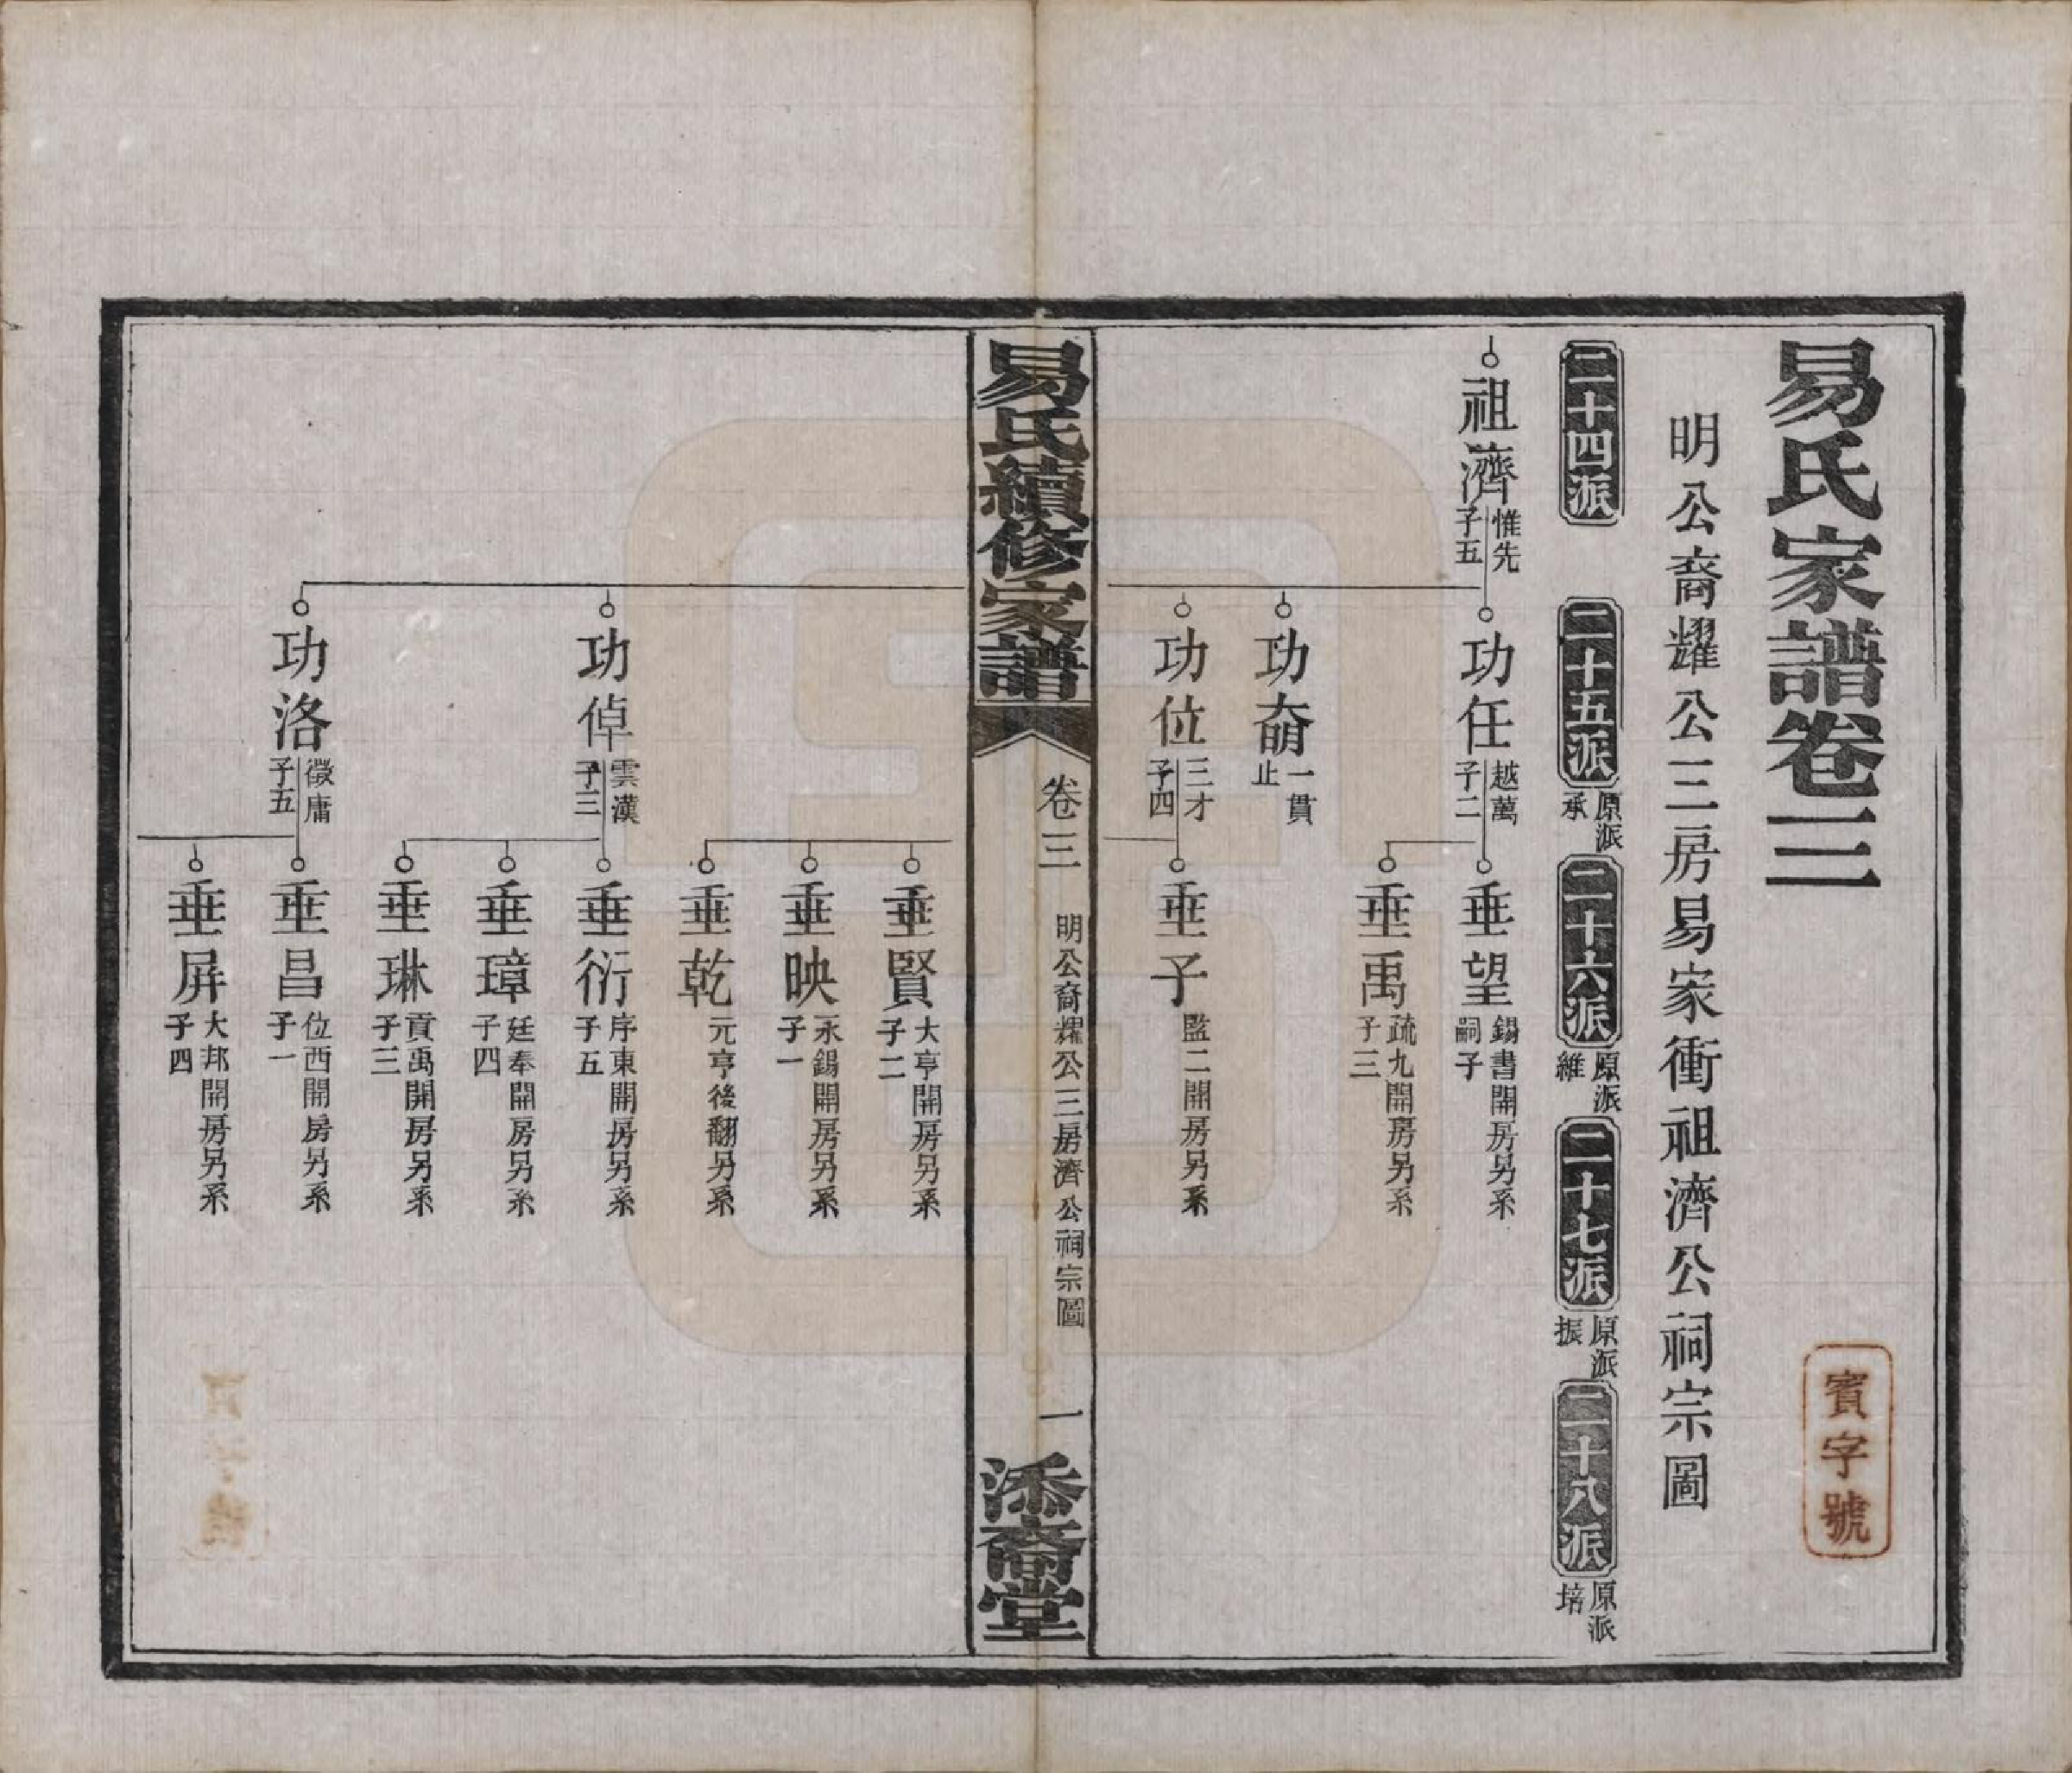 易氏家譜卷三
賓字號
明公裔耀公三房易家衝祖濟公祠宗圖
二十四派
二十五派 原派承
二十六派 原派維
二十七派 原派振
二十八派 原派培
祖濟 惟先 子五
功任 越萬 子二
垂望 錫書開房另系 嗣子
垂禹 疏九開房另系 子三
功奣 一貫 止
功位 三才 子四
垂子 監二開房另系
易氏續修家譜
卷三
明公裔耀公三房濟公祠宗圖
一
添裔堂
垂賢 大亨開房另系 子二
垂映 永錫開房另系 子一
垂乾 元亨後翻另系
功倬 雲漢 子三
垂衍 序東開房另系 子五
垂璋 廷奉開房另系 子四
垂琳 貢禹開房另系 子三
功洛 徵庸 子五
垂昌 位西開房另系 子一
垂屏 大邦開房另系 子四